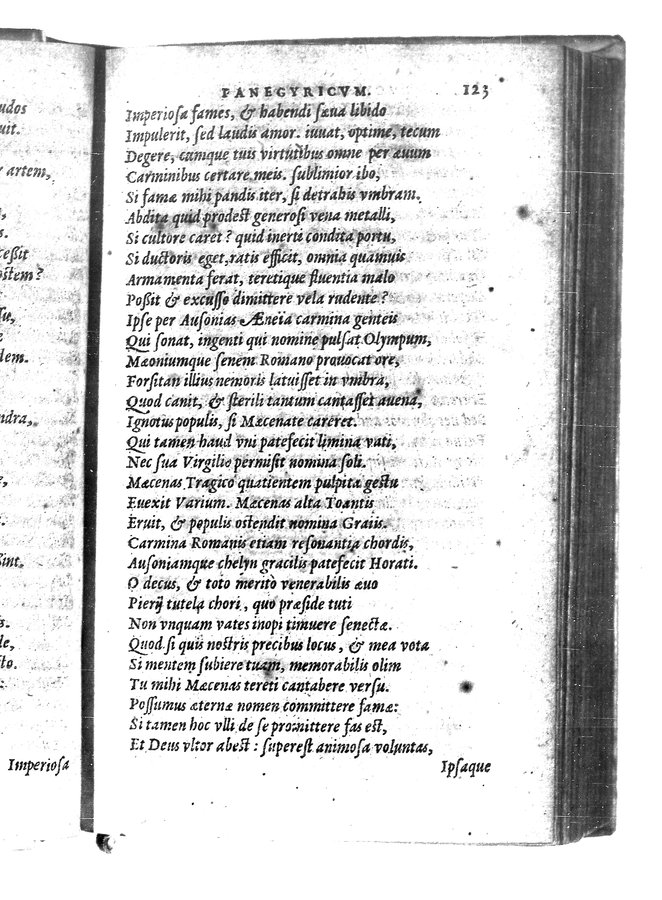 udos
uit.
r artem,
s.
ceßit
ostem?
su,
dem.
ndra,
ßint.
s.
de,
to.
Imperiosa
PANEGYRICVM. 123
Imperiosa fames, & habendi sæua libido
Impulerit, sed laudis amor. iuuat, optime, tecum
Degere, cumque tuis virtutibus omne per æuum
Carminibus certare meis. sublimior ibo,
Si famæ mihi pandis iter, si detrahis vmbram.
Abdita quid prodest generosi vena metalli,
Si cultore caret? quid inerti condita portu,
Si ductoris eget, ratis efficit, omnia quamuis
Armamenta ferat, teretique fluentia malo
Poßit & excusso dimittere vela rudente?
Ipse per Ausonias Æneïa carmina genteis
Qui sonat, ingenti qui nomine pulsat Olympum,
Mæoniumque senem Romano prouocat ore,
Forsitan illius nemoris latuisset in vmbra,
Quod canit, & sterili tantum cantasset auena,
Ignotus populis, si Mæcenate careret.
Qui tamen haud vni patefecit limina vati,
Nec sua Virgilio permisit nomina soli.
Mæcenas Tragico quatientem pulpita gestu
Euexit Varium. Mæcenas alta Toantis
Eruit, & populis ostendit nomina Graiis.
Carmina Romanis etiam resonantia chordis,
Ausoniamque chelyn gracilis patefecit Horati.
O decus, & toto merito venerabilis æuo
Pierij tutela chori, quo præside tuti
Non vnquam vates inopi timuere senectæ.
Quod si quis nostris precibus locus, & mea vota
Si mentem subiere tuam, memorabilis olim
Tu mihi Mæcenas tereti cantabere versu.
Possumus æternæ nomen committere famæ:
Si tamen hoc vlli de se promittere fas est,
Et Deus vltor abest: superest animosa voluntas,
Ipsaque